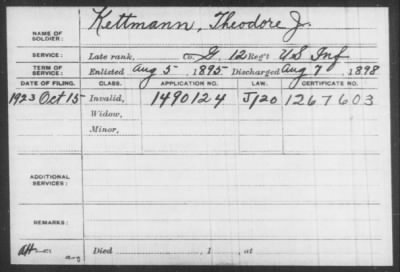 Kettmann, Theodore J.
NAME OF SOLDIER:
SERVICE: Late rank, Co. G, 12 Reg't US Inf
TERM OF SERVICE: Enlisted Aug 5, 1895 Discharged Aug 7, 1898
DATE OF FILING. CLASS. APPLICATION NO. LAW. CERTIFICATE NO.
1923 Oct 15 Invalid, 1490124 J120 1267603
Widow,
Minor,
ADDITIONAL SERVICES:
REMARKS:
Died , 1 , at